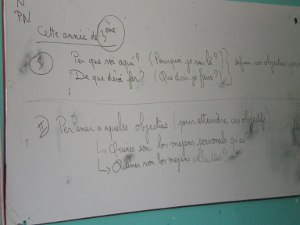 N
PN
Cette année de 3ème
① Per que soi aqui? (Pourquoi je suis là?) } définir ces objectius
De que devi far? (Que dois je faire?)
② Per anar a aqueles objectius (pour atteindre ces objectifs)
↳ Quines son los mejans personals
↳ Quines son los mejans collectius?